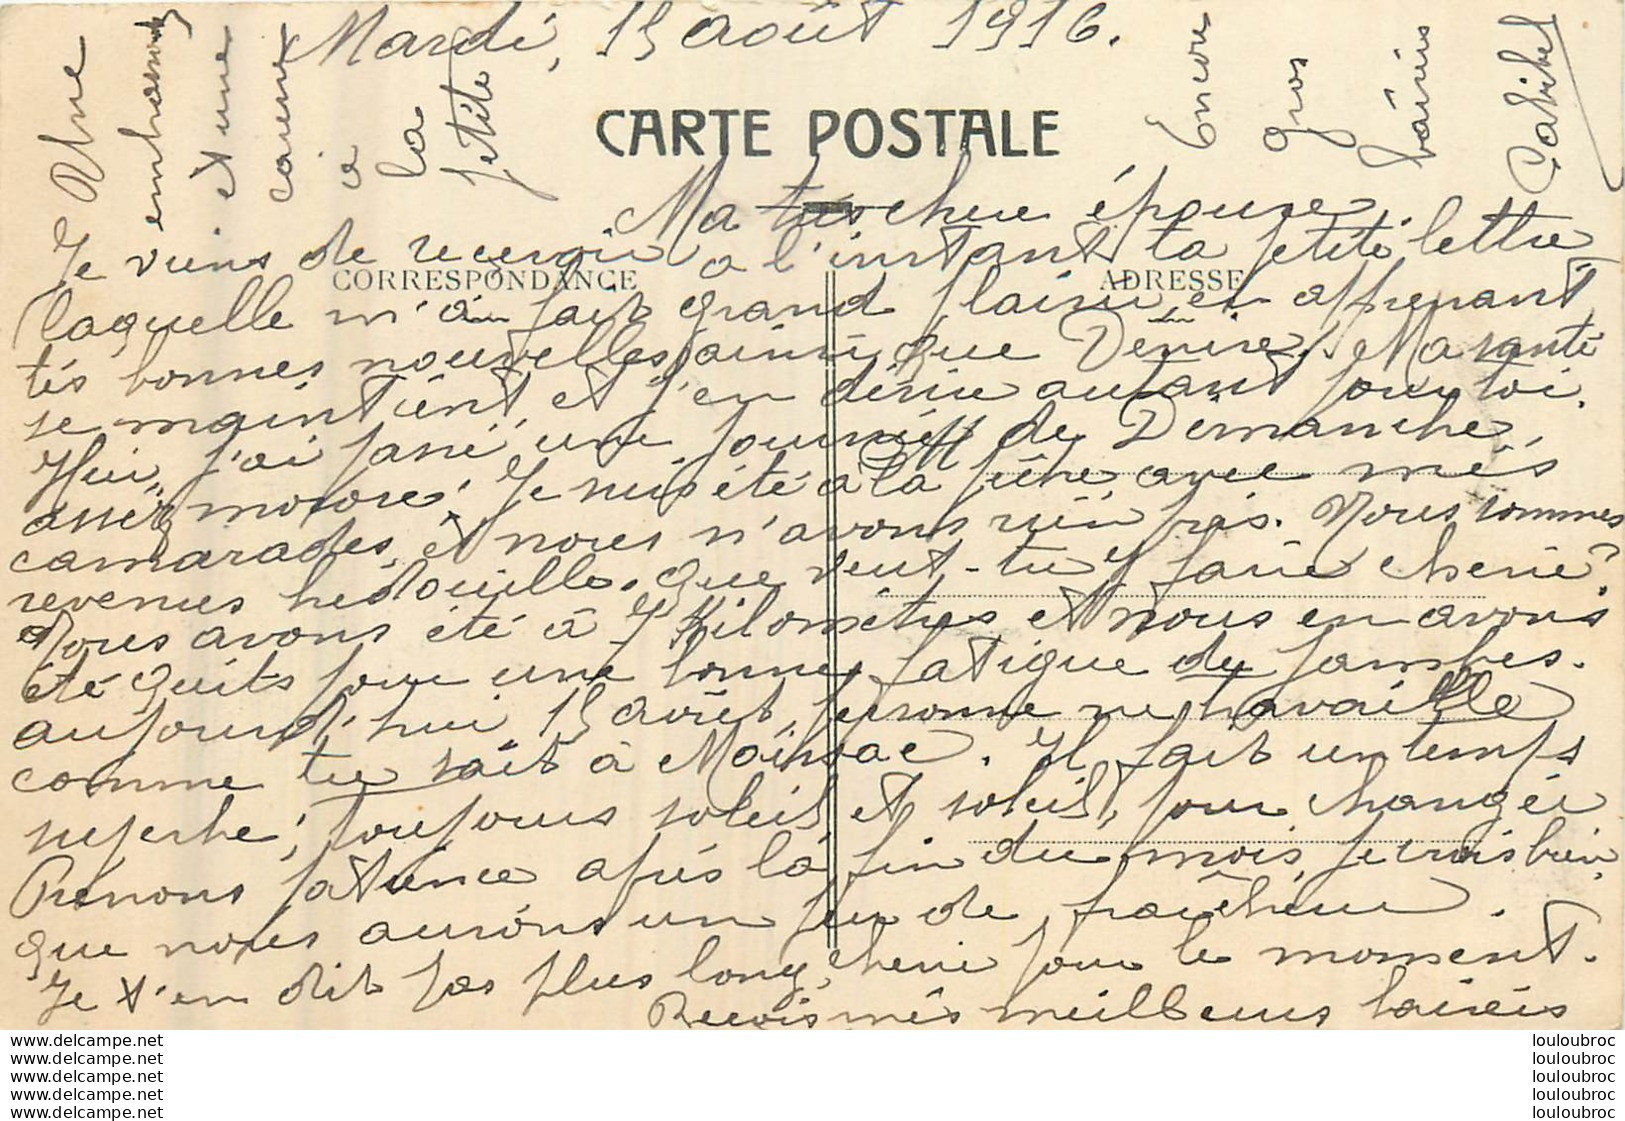 Mardi, 15 août 1916.
CARTE POSTALE
Ma chère épouse.
CORRESPONDANCE
ADRESSE
Je viens de recevoir a l'instant ta petite lettre
laquelle m'a fait grand plaisir en apprenant
tés bonnes nouvelles, ainsi que Dénise. Ma santé
se maintient, et j'en désire autant pour toi.
Hier, j'ai passé une journée de Dimanche,
assez morose. Je suis été à la pêche avec més
camarades, et nous n'avons rien pris. Nous sommes
revenus bredouille. que veut-tu y faire cherie?
Nous avons été à 7 Kilométres et nous en avons
été quits pour une bonne fatigue de jambes.
aujourd'hui 15 août, personne ne travaille
comme tu sait à Moissac. Il fait un temps
superbe; toujours soleil, et soleil, pour changer
Prenons patience aprés la fin du mois, je crois bien,
que nous aurons un peu de fraîcheur.
Je t'en dit pas plus long, cherie pour le moment.
Reçois més meilleurs baisers
Une
et une
caresse
a
la
petite
Encore
gros
www.delcampe.net
www.delcampe.net
www.delcampe.net
www.delcampe.net
www.delcampe.net
louloubroc
louloubroc
louloubroc
louloubroc
louloubroc